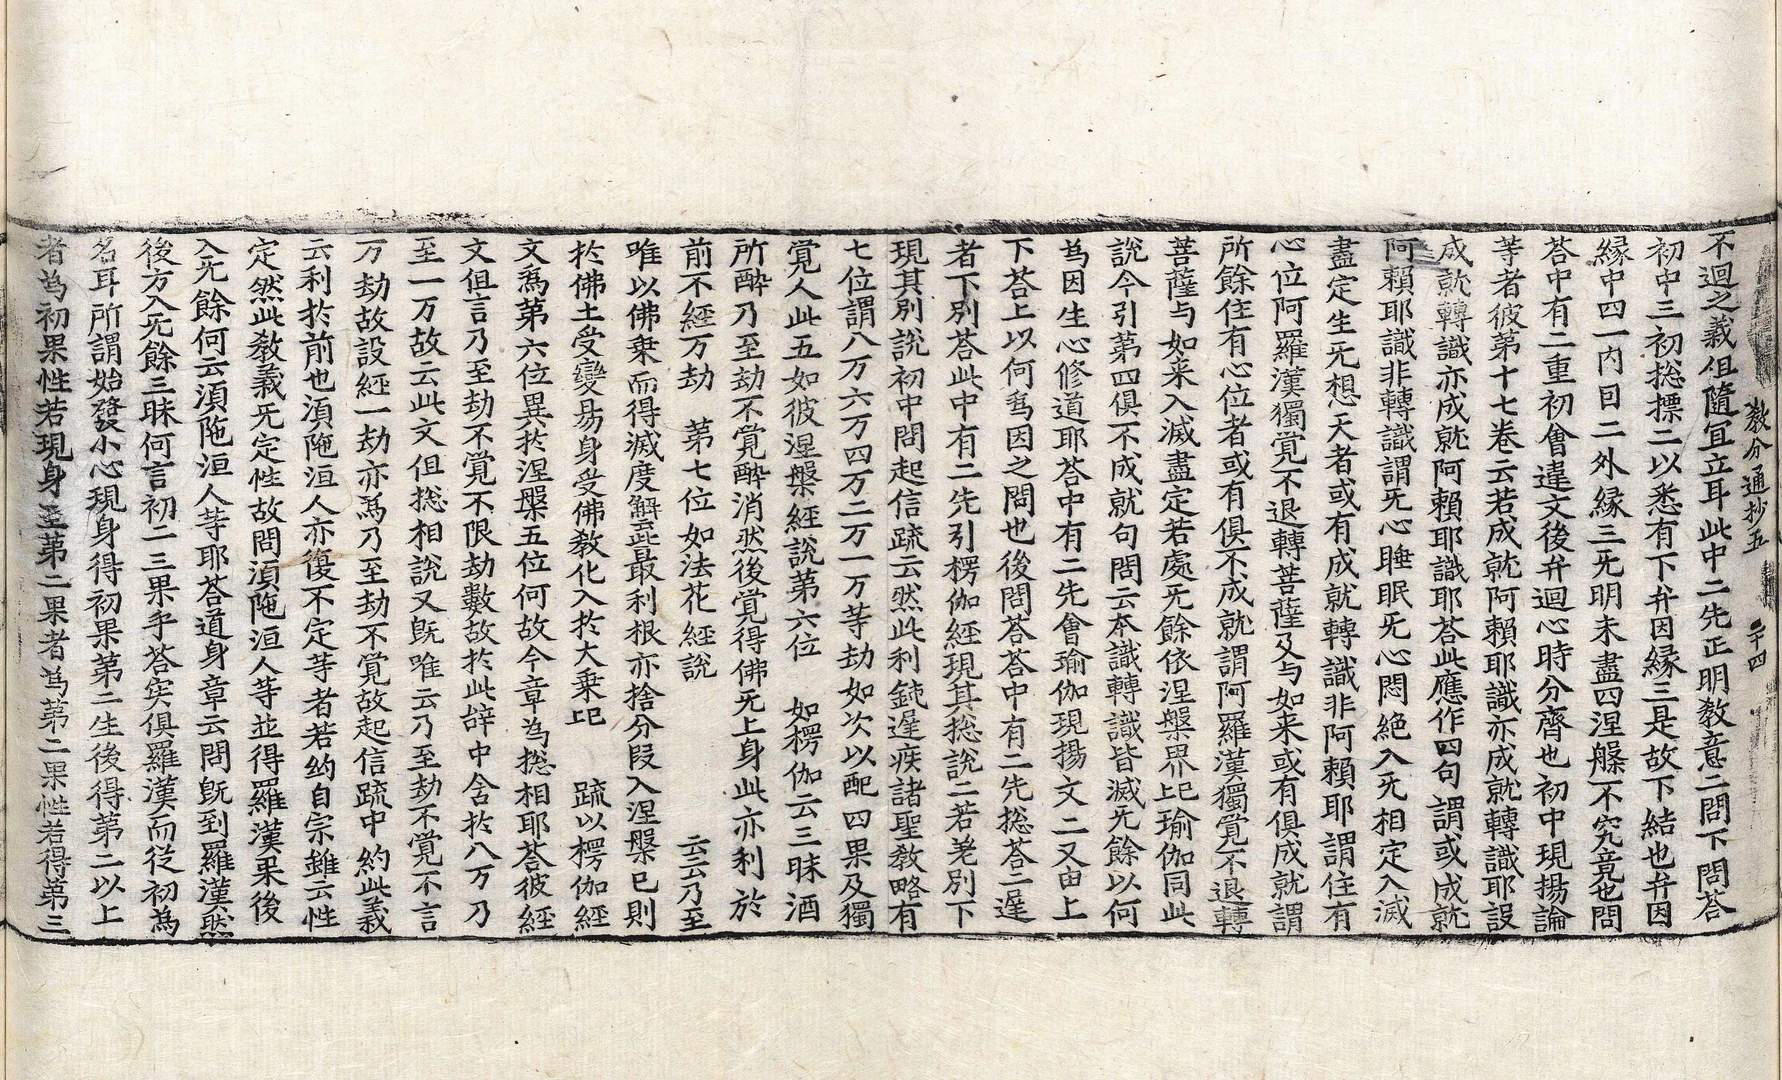 教分通抄五 二十四
不迴之義但隨冝立耳此中二先正明教意二問下問荅
初中三初捴摽二以悉有下弁因緣三是故下結也弁因
緣中四一內因二外緣三无明未盡四涅槃不究竟也問
荅中有二重初會違文後弁迴心時分齊也初中現揚論
等者彼第十七卷云若成就阿賴耶識亦成就轉識耶設
成就轉識亦成就阿賴耶識耶荅此應作四句謂或成就
阿賴耶識非轉識謂无心睡眠无心悶絶入无相定入滅
盡定生无想天者或有成就轉識非阿賴耶謂住有
心位阿羅漢獨覺不退轉菩薩及与如来或有俱成就謂
所餘住有心位者或有俱不成就謂阿羅漢獨覺不退轉
菩薩与如来入滅盡定若處无餘依涅槃界上巳瑜伽同此
說今引第四俱不成就句問云本識轉識皆滅无餘以何
為因生心修道耶荅中有二先會瑜伽現揚文二又由上
下荅上以何為因之問也後問荅荅中有二先捴荅二遅
者下別荅此中有二先引楞伽經現其捴說二若𠰥別下
現其別說初中問起信疏云然此利鈍遅疾諸聖敎略有
七位謂八万六万四万二万一万等劫如次以配四果及獨
覺人此五如彼涅槃經說第六位 如楞伽云三昧酒
所醉乃至劫不覺醉消然後覺得佛无上身此亦利於
前不經万劫 第七位如法花經說 云云乃至
唯以佛乗而得滅度觧云此最利根亦捨分段入涅槃已則
於佛土受變易身受佛敎化入於大乗上巳 疏以楞伽經
文為第六位異於涅槃五位何故今章為捴相耶荅彼經
文但言乃至劫不覺不限劫數故於此辝中含於八万乃
至一万故云此文但捴相說又旣唯云乃至劫不覺不言
万劫故設經一劫亦為乃至劫不覺故起信疏中約此義
云利於前也湏陁洹人亦復不定等者若約自宗雖云性
定然此敎義无定性故問湏陁洹人等並得羅漢果後
入无餘何云湏陁洹人等耶荅道身章云問旣到羅漢然
後方入无餘三昧何言初二三果乎荅实俱羅漢而從初為
名耳所謂始發小心現身得初果第二生後得第二以上
者為初果性若現身至第二果者為第二果性若得第三